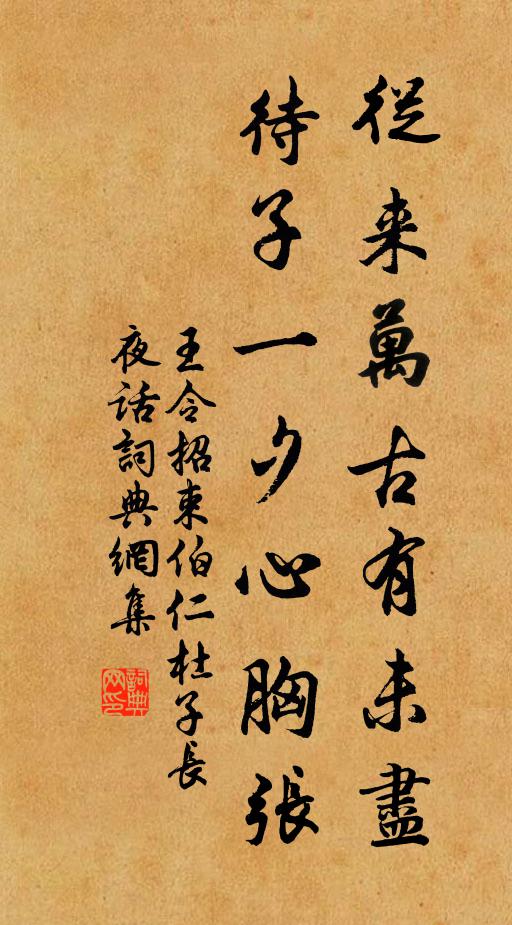 從来萬古有未盡
待子一夕心胸張
王令招束伯仁杜子長
夜話詞典網集
詞典
网印